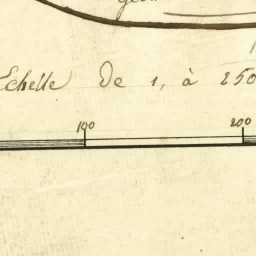 Echelle De 1, à 250
100 200